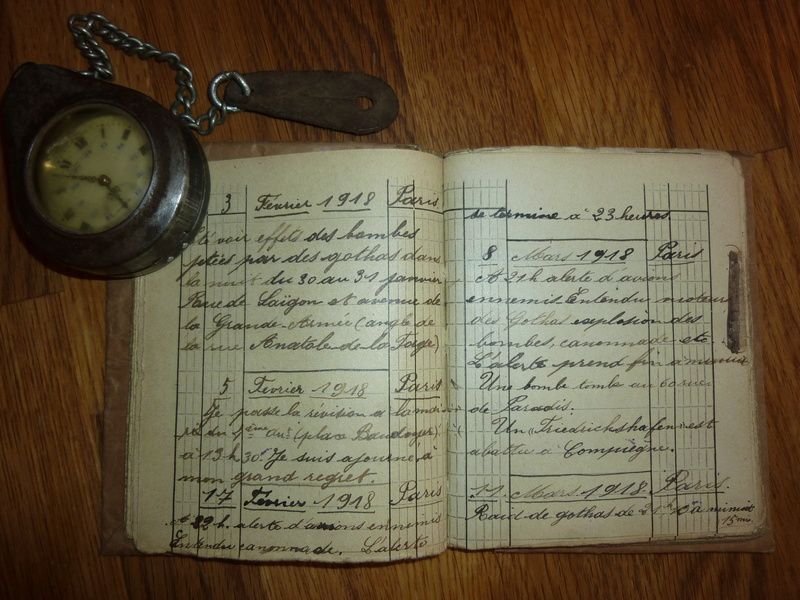 3 Fevrier 1918 Paris
été voir effets des bombes
jetées par des gothas dans
la nuit du 30 au 31 janvier
Rue de Saïgon et avenue de
la Grande-Armée (angle de
la rue Anatole-de-la Forge)
5 Fevrier 1918 Paris
Je passe la révision a la mai-
rie du 4ème arrt (place Baudoyer)
à 13h30. Je suis ajourné, à
mon grand regret.
17 Fevrier 1918 Paris
A 22 h. alerte d'avions ennemis
Entendu canonnade. L'alerte
se termine à 23 heures.
8 Mars 1918 Paris
A 21h alerte d'avions
ennemis. Entendu moteurs
des Gothas explosion des
bombes, canonnade etc
L'alerte prend fin à minuit
Une bombe tombe au 60 rue
de Paradis.
Un "Friedrichshafen" est
abattu à Compiègne.
11 Mars 1918 Paris.
Raid de gothas de 21h10 à minuit
15 mn.